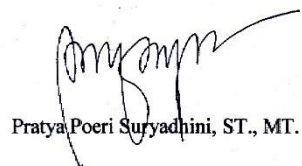 Pratya Poeri Suryadhini, ST., MT.